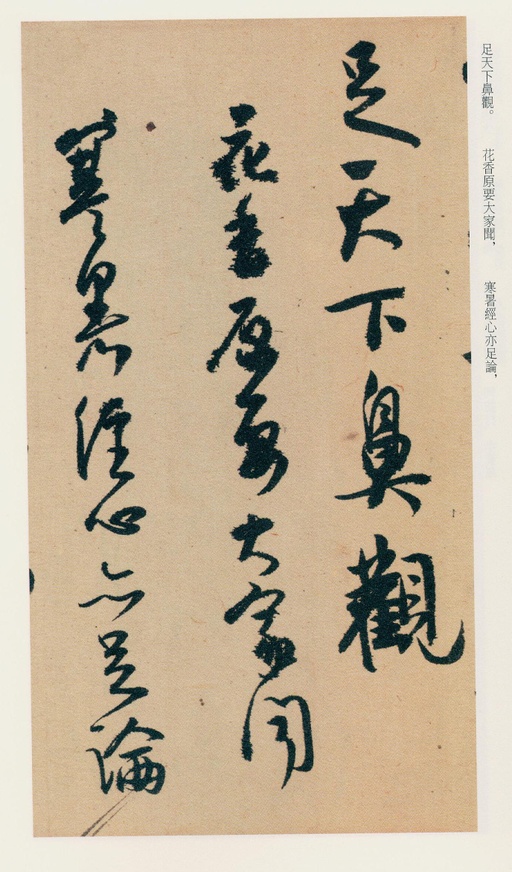 足天下鼻觀。 花香原要大家聞, 寒暑經心亦足論,
足天下鼻觀
花香原要大家聞
寒暑經心亦足論